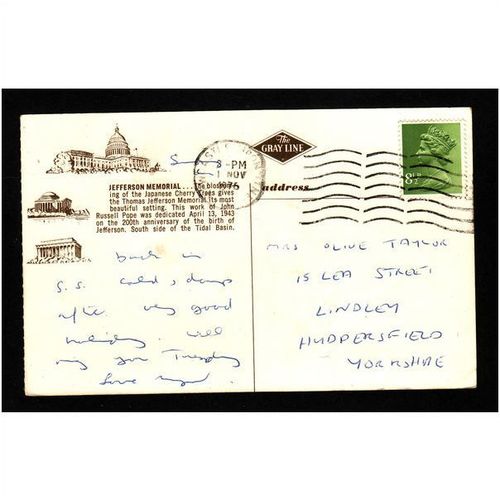 Sunday
The
GRAY LINE
8-PM
1 NOV
1976
8½P
JEFFERSON MEMORIAL . . . The blossom-
ing of the Japanese Cherry Trees gives
the Thomas Jefferson Memorial its most
beautiful setting. This work of John
Russell Pope was dedicated April 13, 1943
on the 200th anniversary of the birth of
Jefferson. South side of the Tidal Basin.
address
back in
S.S. cold & damp
after very good
holiday. Will
ring you Tuesday
love
MRS OLIVE TAYLOR
15 LEA STREET
LINDLEY
HUDDERSFIELD
YORKSHIRE